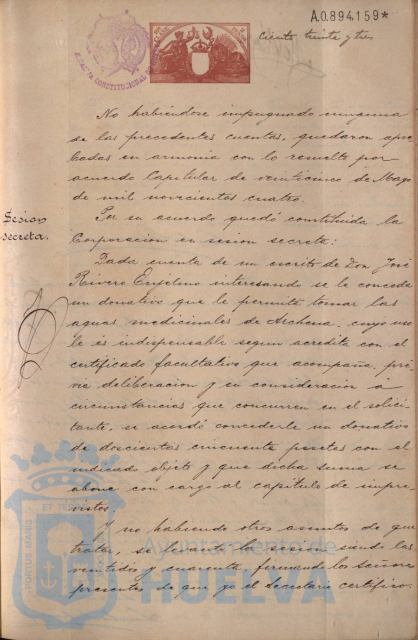 A.0.894.159*
Ciento treinta y tres
No habiéndose impugnado ninguna
de las precedentes cuentas, quedaron apro
badas en armonia con lo resuelto por
acuerdo Capitular de veinticinco de Mayo
de mil novecientos cuatro.
Sesion
secreta.
Por su acuerdo quedó constituida la
Corporacion en sesion secreta:
Dada cuenta de un escrito de Don José
Rivero interesando se le conceda
un donativo que le permita tomar las
aguas medicinales de Archena, cuyo uso
le es indispensable segun acredita con el
certificado facultativo que acompaña, pré
via deliberacion y en consideracion á
circunstancias que concurren en el solici
tante, se acordó concederle un donativo
de doscientas cincuenta pesetas con el
indicado objeto y que dicha suma se
abone con cargo al capitulo de impre
vistos.
Y no habiendo otros asuntos de que
tratar, se levantó la sesion siendo las
veintidos y cuarenta, firmando los Señores
presentes de que yo el Secretario certifico.
PORTUS MARIS ET TERRAE
Ayuntamiento de
HUELVA